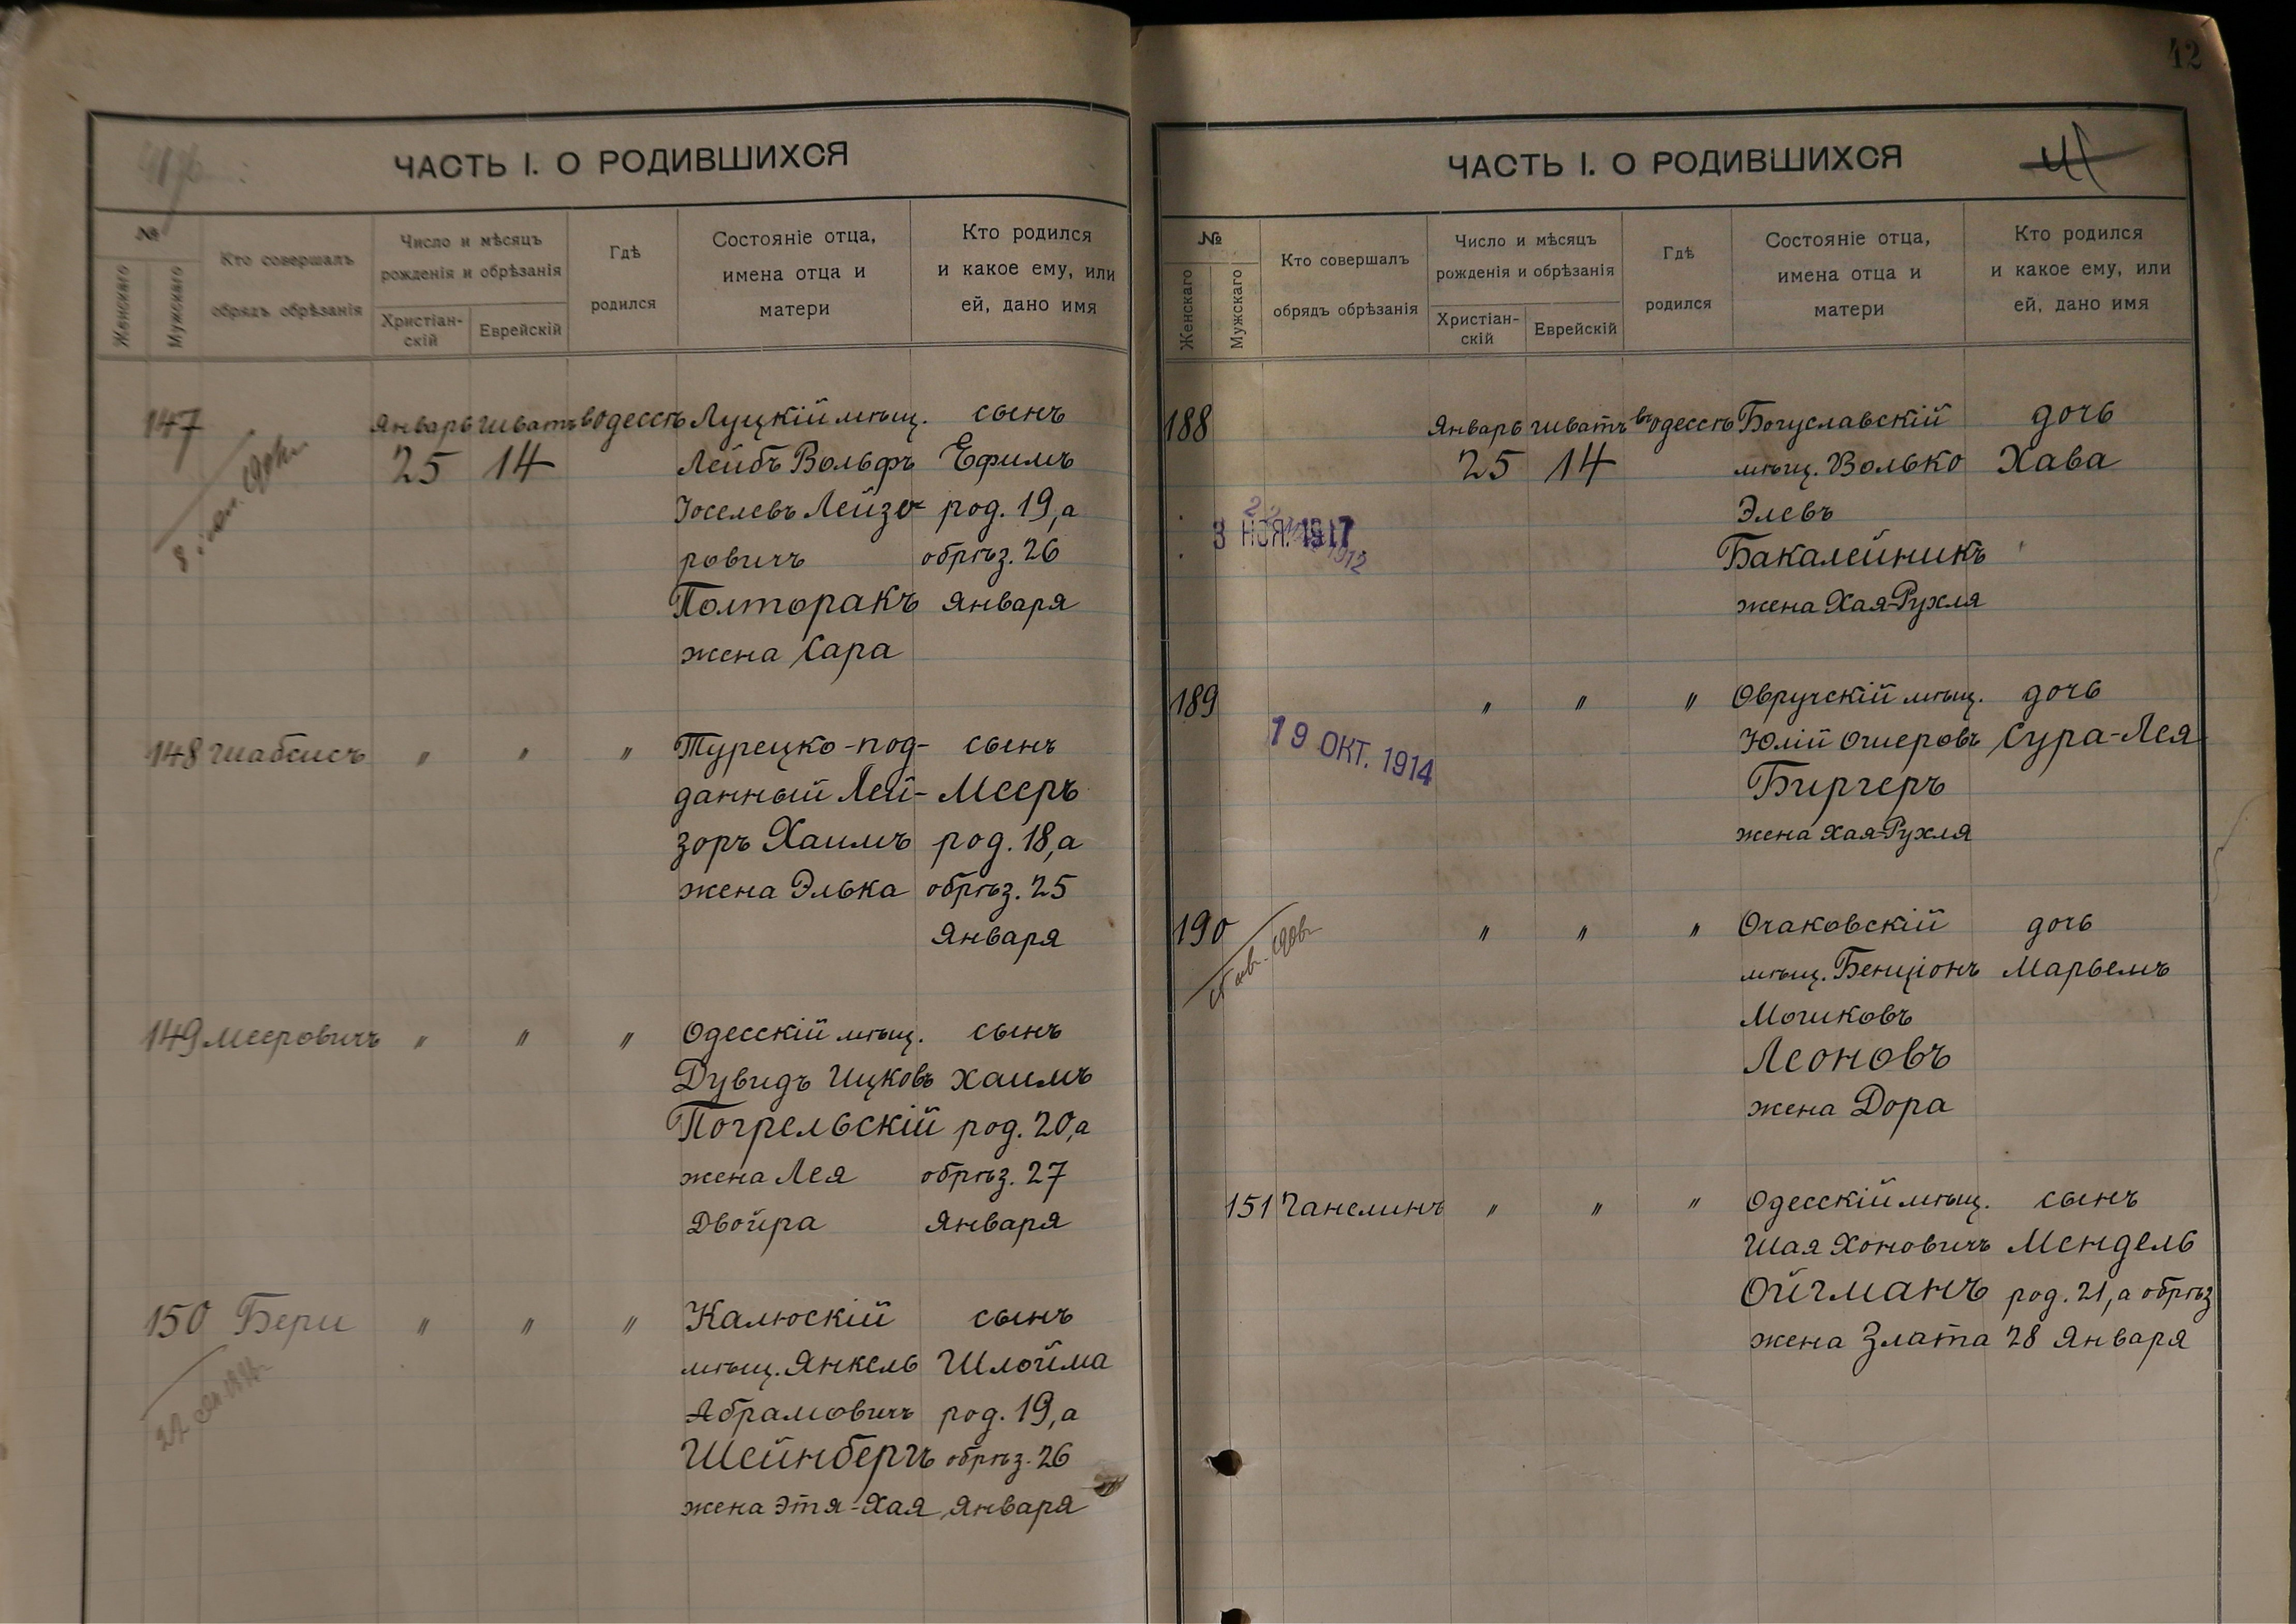 ЧАСТЬ I. О РОДИВШИХСЯ
№
Женскаго
Мужскаго
Кто совершалъ
обрядъ обрѣзанія
Число и мѣсяцъ
рожденія и обрѣзанія
Христіан-
скій
Еврейскій
Гдѣ
родился
Состояніе отца,
имена отца и
матери
Кто родился
и какое ему, или
ей, дано имя
147 Январь Шватъ въ Одессѣ Луцкій мѣщ. сынъ
25 14 Лейбъ Вольфъ Ефимъ
Іоселевъ Лейзе- род. 19, а
ровичъ обрѣз. 26
Полторакъ Января
жена Сара
148 Шабсисъ " " " Турецко-под- сынъ
данный Лей- Мееръ
зоръ Хаимъ род. 18, а
жена Элька обрѣз. 25
Января
149 Мееровичъ " " " Одесскій мѣщ. сынъ
Дувидъ Ицковъ Хаимъ
Погрельскій род. 20, а
жена Лея обрѣз. 27
Двойра Января
150 Бери " " " Калюскій сынъ
мѣщ. Янкель Шлойма
Абрамовичъ род. 19, а
Шейнбергъ обрѣз. 26
жена Этя-Хая Января
42
ЧАСТЬ I. О РОДИВШИХСЯ
41
№
Женскаго
Мужскаго
Кто совершалъ
обрядъ обрѣзанія
Число и мѣсяцъ
рожденія и обрѣзанія
Христіан-
скій
Еврейскій
Гдѣ
родился
Состояніе отца,
имена отца и
матери
Кто родился
и какое ему, или
ей, дано имя
188 Январь Шватъ въ Одессѣ Богуславскій дочь
25 14 мѣщ. Волько Хава
Элевъ
3 НОЯ. 1917
Бакалейникъ
жена Хая-Рухля
189 " " " Овручскій мѣщ. дочь
19 ОКТ. 1914
Юлій Ошеровъ Сура-Лея
Биргеръ
жена Хая-Рухля
190 " " " Очаковскій дочь
мѣщ. Бенціонъ Марьемъ
Мошковъ
Леоновъ
жена Дора
151 Ганелинъ " " " Одесскій мѣщ. сынъ
Шая Хоновичъ Мендель
Ойгманъ род. 21, а обрѣз
жена Злата 28 Января